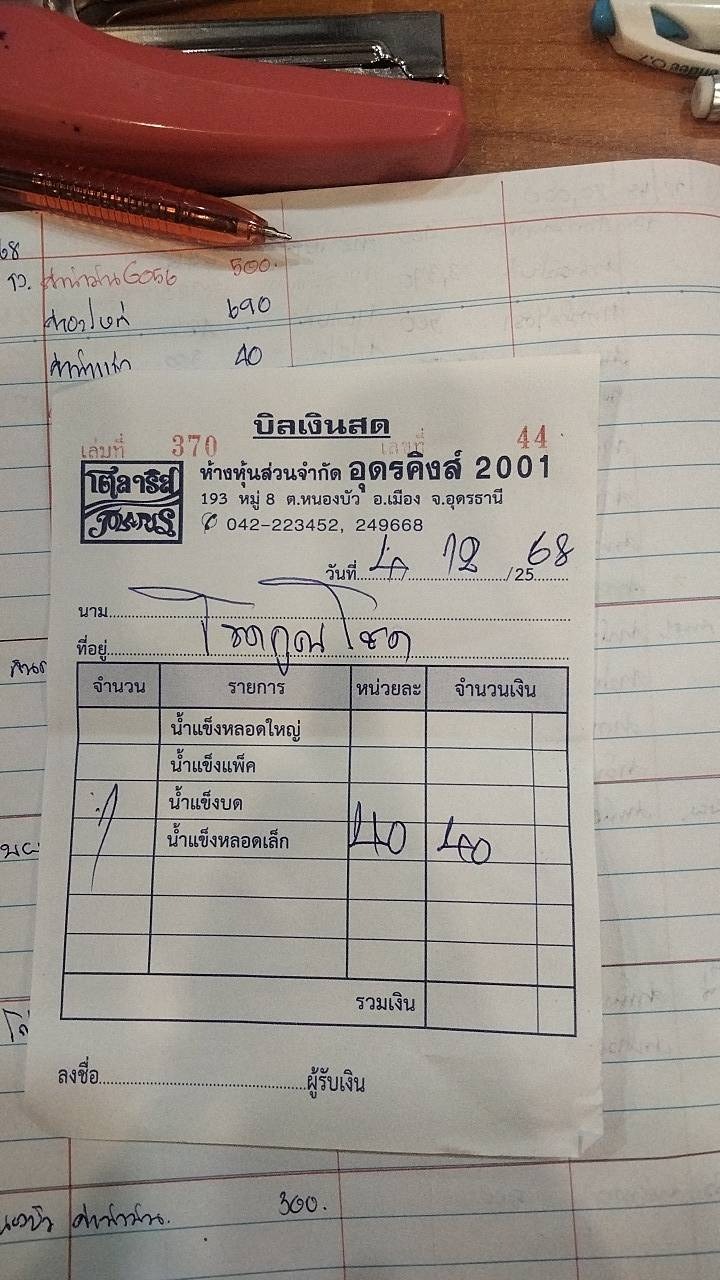 68
ค่าน้ำมัน6056 500.
690
40
บิลเงินสด
เล่มที่ 370 เลขที่ 44
โตลาริส
POLARIS
ห้างหุ้นส่วนจำกัด อุดรคิงส์ 2001
193 หมู่ 8 ต.หนองบัว อ.เมือง จ.อุดรธานี
042-223452, 249668
วันที่ 4 12 /25 68
นาม
ที่อยู่
โชคคูณโชค
จำนวน รายการ หน่วยละ จำนวนเงิน
น้ำแข็งหลอดใหญ่
น้ำแข็งแพ็ค
น้ำแข็งบด
1 น้ำแข็งหลอดเล็ก 40 40
รวมเงิน
ลงชื่อ ผู้รับเงิน
ค่าน้ำมัน. 300.